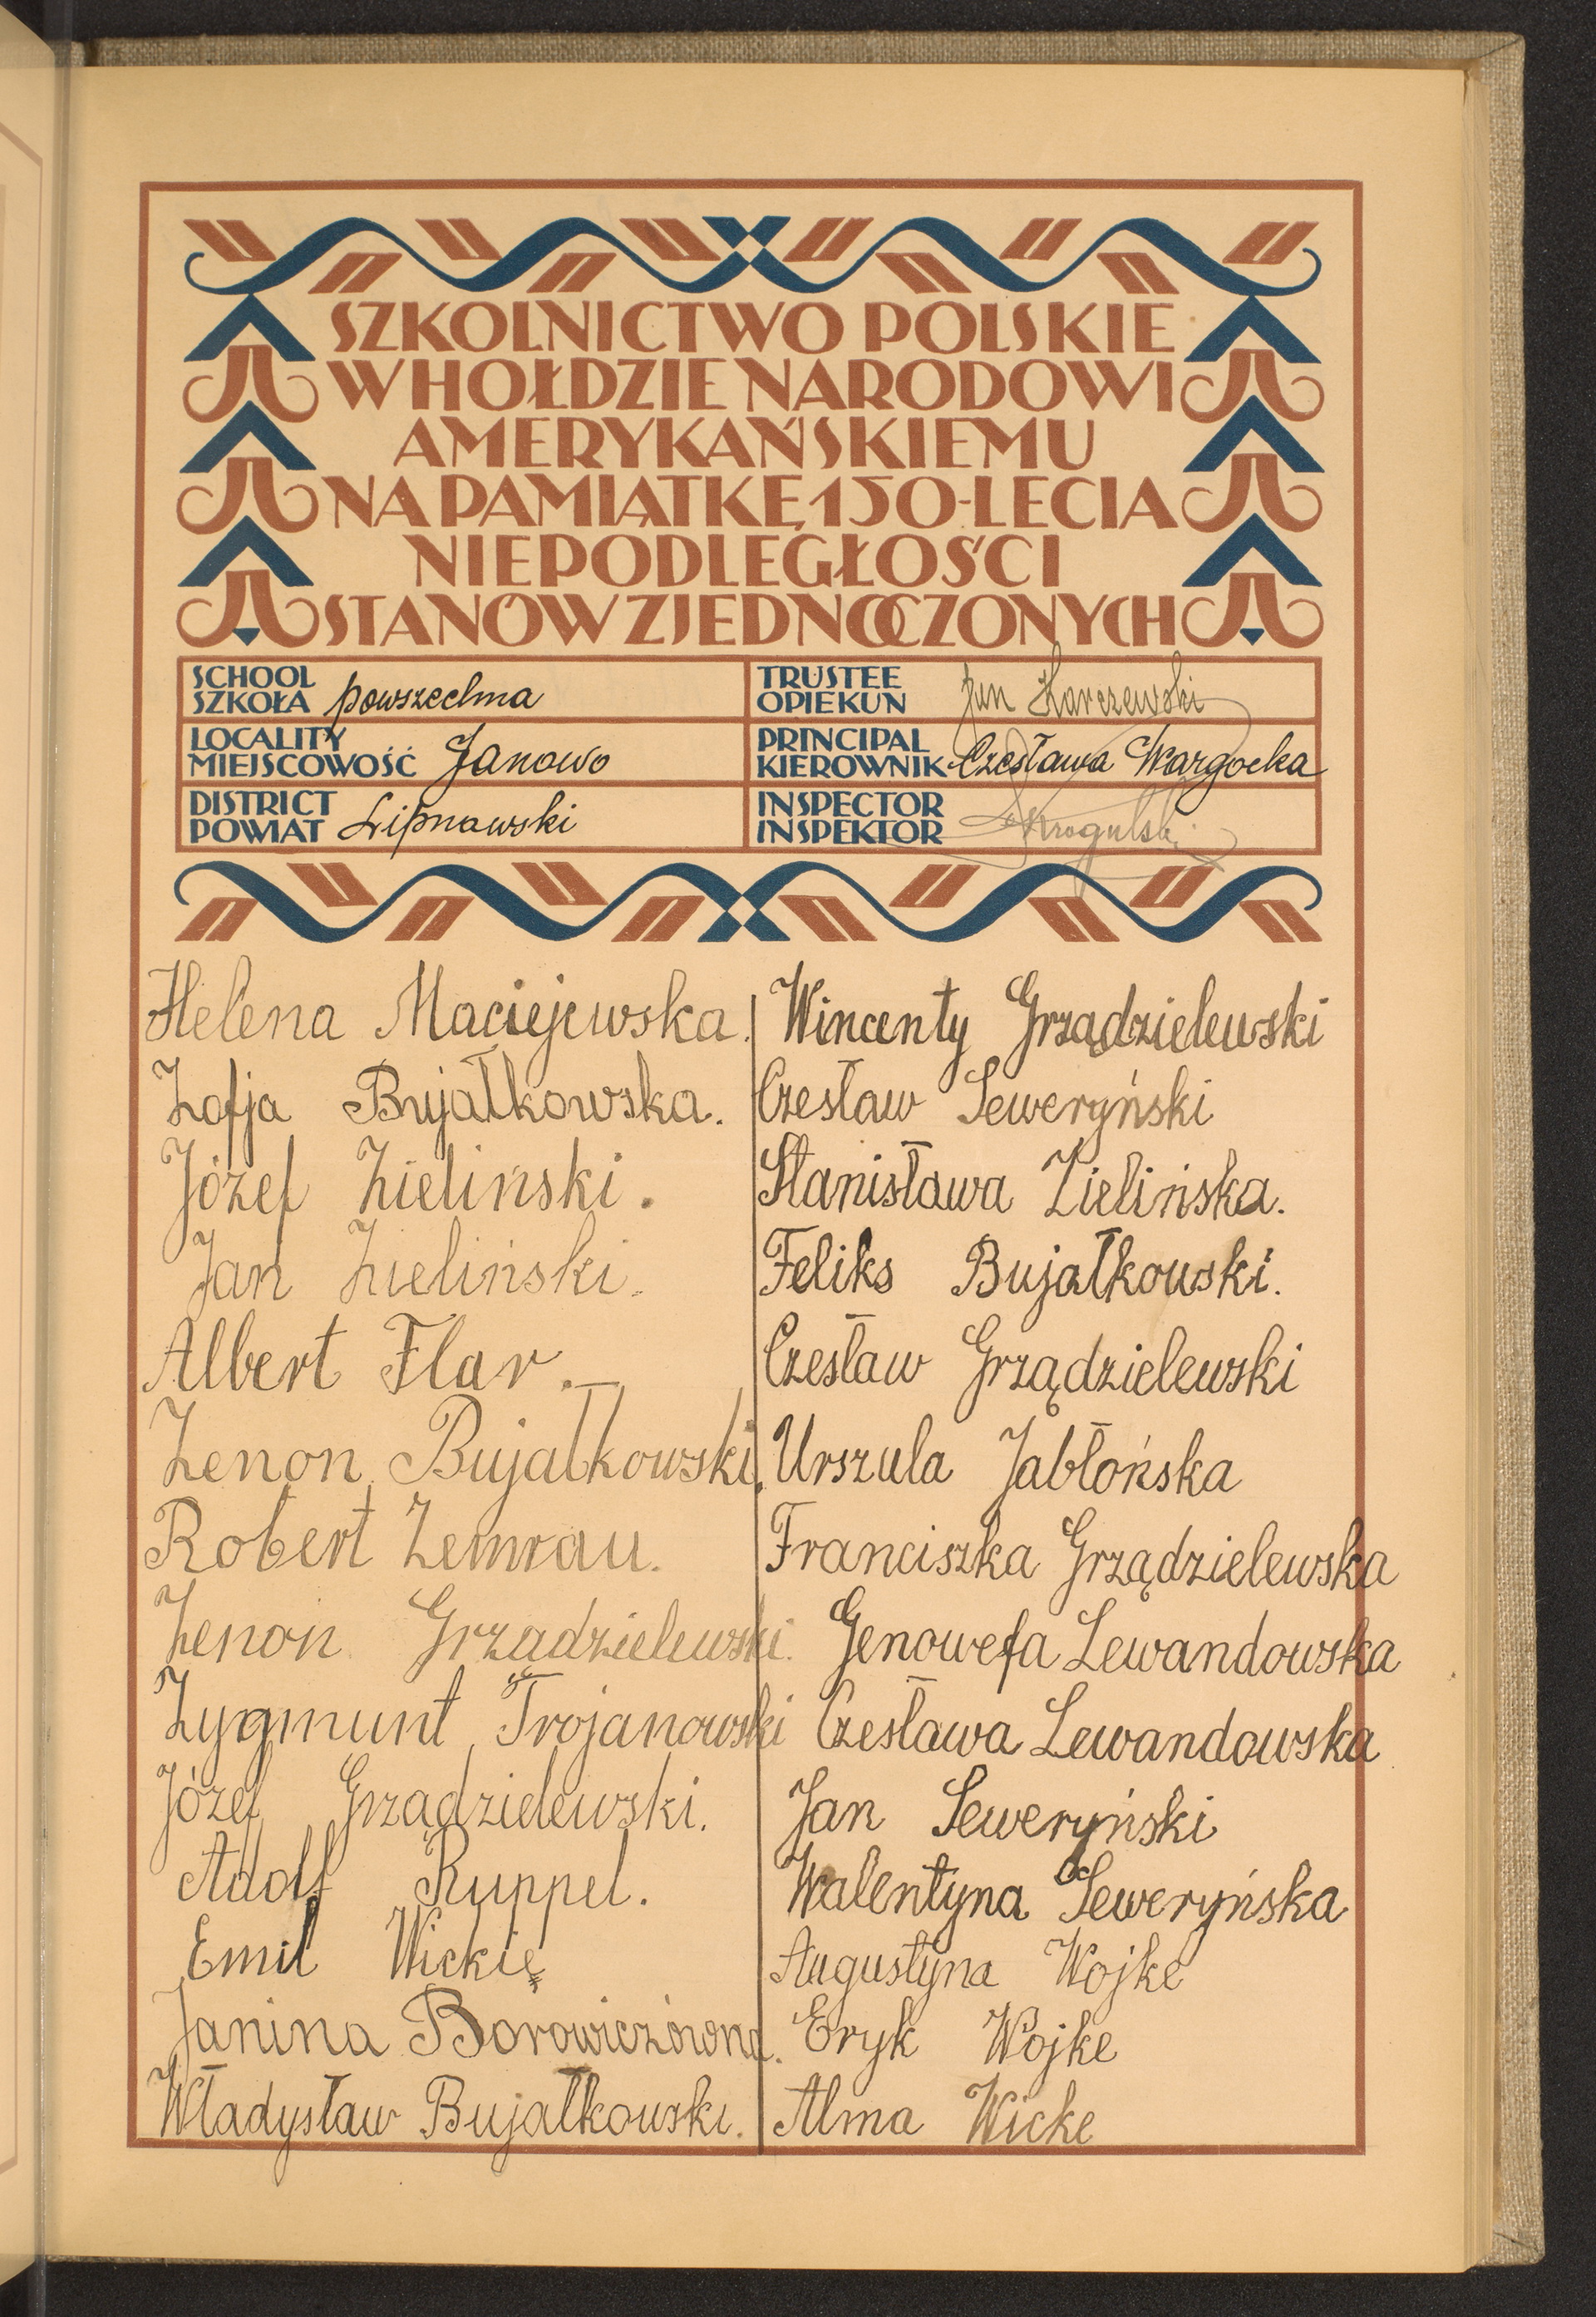 SZKOLNICTWO POLSKIE
W HOŁDZIE NARODOWI
AMERYKAŃSKIEMU
NA PAMIĄTKĘ 150-LECIA
NIEPODLEGŁOŚCI
STANÓW ZJEDNOCZONYCH
SCHOOL
SZKOŁA powszechna
TRUSTEE
OPIEKUN Jan Karczewski
LOCALITY
MIEJSCOWOŚĆ Janowo
PRINCIPAL
KIEROWNIK Czesława Wargocka
DISTRICT
POWIAT Lipnowski
INSPECTOR
INSPEKTOR
Helena Maciejewska.
Zofja Bujałkowska.
Józef Zieliński.
Jan Zieliński.
Albert Flar.
Zenon Bujałkowski.
Robert Zemrau.
Zenon Grządzielewski.
Zygmunt Trojanowski
Józef Grządzielewski.
Adolf Ruppel.
Emil Wickię
Janina Borowiczówna.
Władysław Bujałkowski.
Wincenty Grządzielewski
Czesław Seweryński
Stanisława Zielińska.
Feliks Bujałkowski.
Czesław Grządzielewski
Urszula Jabłońska
Franciszka Grządzielewska
Genowefa Lewandowska
Czesława Lewandowska
Jan Seweryński
Walentyna Seweryńska
Augustyna Wojke
Eryk Wojke
Alma Wicke